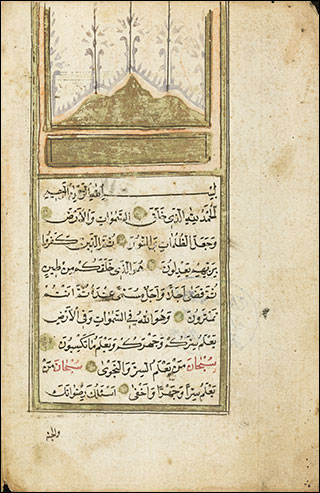 بسم الله الرحمن الرحيم
الحمد لله الذي خلق السموات والأرض
وجعل الظلمات والنور ثم الذين كفروا
بربهم يعدلون هو الذي خلقكم من طين
ثم قضى اجلا واجل مسمى عنده ثم انتم
تمترون وهو الله في السموات وفي الأرض
يعلم سركم وجهركم ويعلم ما تكسبون
سبحان من يعلم السر والنجوى سبحان من
يعلم سرا وجهرا واخفى اسئلك رضوانك
والجنة